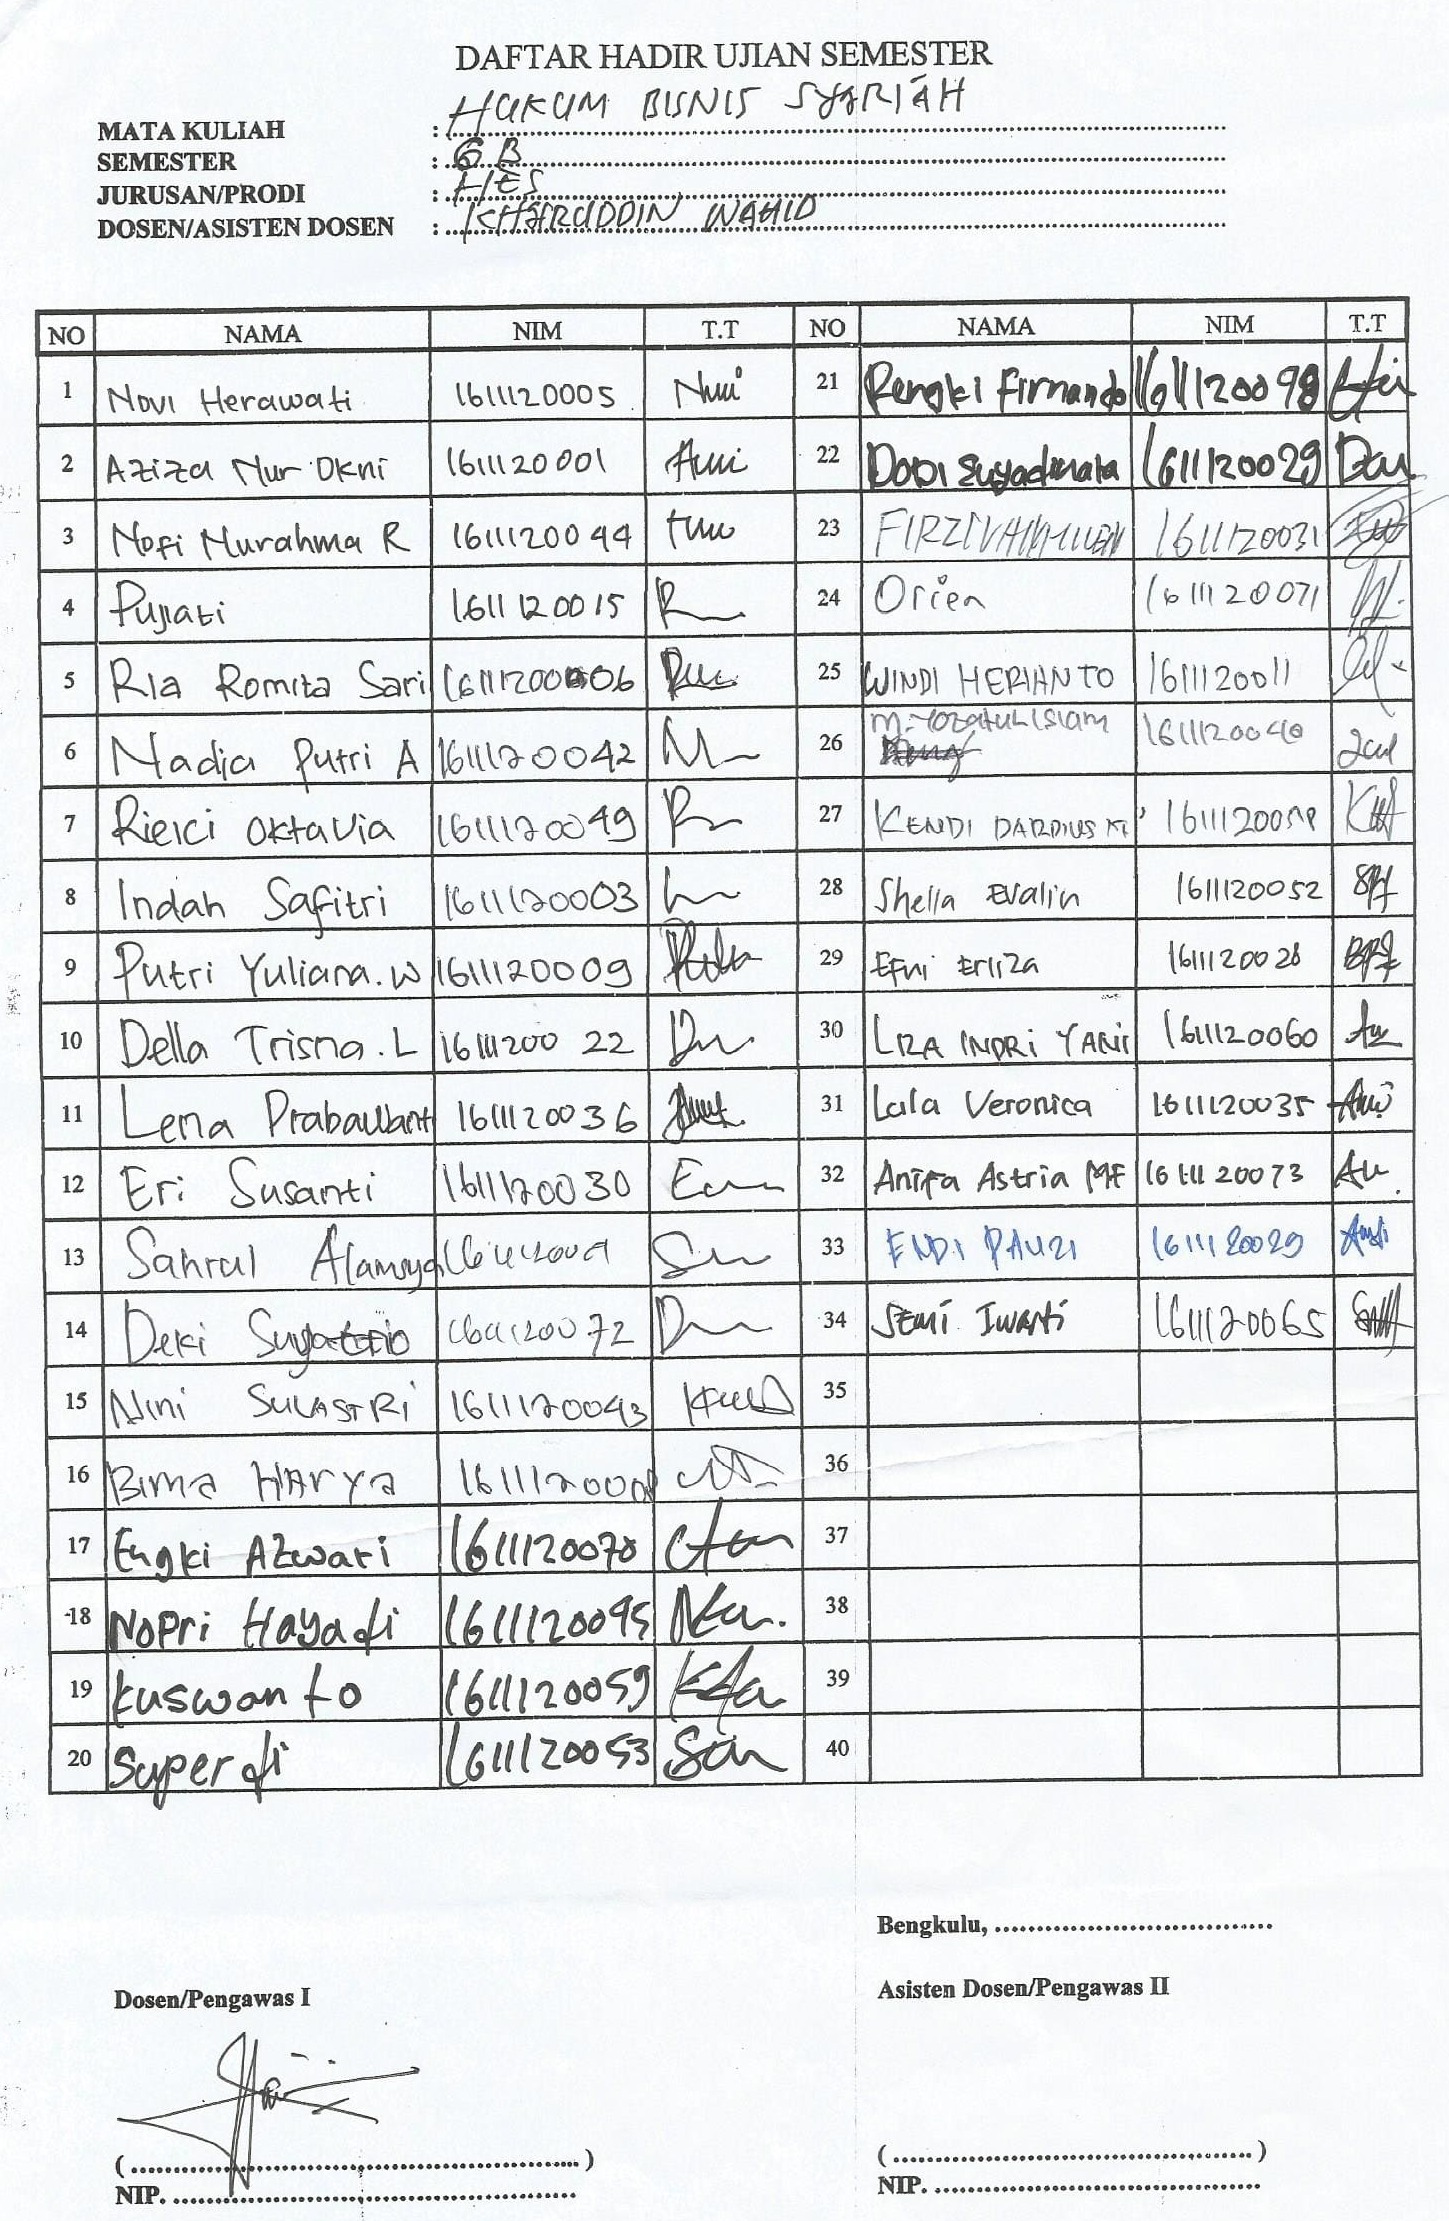 DAFTAR HADIR UJIAN SEMESTER
MATA KULIAH : HUKUM BISNIS SYARIAH
SEMESTER : 6 B
JURUSAN/PRODI : HES
DOSEN/ASISTEN DOSEN : KHAIRUDDIN WAHID
NO NAMA NIM T.T NO NAMA NIM T.T
1 Novi Herawati 1611120005 21 Rengki Firnando 1611120098
2 Aziza Nur Okni 1611120001 22 Dodi Suyadinata 1611120029
3 Nofi Nurahma R 1611120044 23 1611120031
4 Pujiati 1611120015 24 Orien 1611120071
5 Ria Romita Sari 25 WINDI HERIANTO 1611120011
6 Nadia Putri A 1611120042 26
7 Rieici Oktavia 1611120049 27 KENDI
8 Indah Safitri 1611120003 28 Shella Evalin 1611120052
9 Putri Yuliana.W 1611120009 29 Efni Erliza 1611120028
10 Della Trisna.L 1611120022 30 LIZA INDRI YANI 1611120060
11 Lena 1611120036 31 Lala Veronica 1611120035
12 Eri Susanti 1611120030 32 Anifa Astria MF 1611120073
13 Sahrul 33 ENDI PAUZI 1611120029
14 Deki 34 SEMI Iwanti 1611120065
15 Nini SULASTRI 1611120043 35
16 BIMA HARYA 36
17 Engki Azwari 1611120070 37
18 Nopri Hayadi 1611120045 38
19 Kuswanto 1611120059 39
20 Superdi 1611120053 40
Bengkulu, ..................................
Dosen/Pengawas I Asisten Dosen/Pengawas II
( .................................................. ) ( .......................................... )
NIP. .................................................. NIP. ..........................................